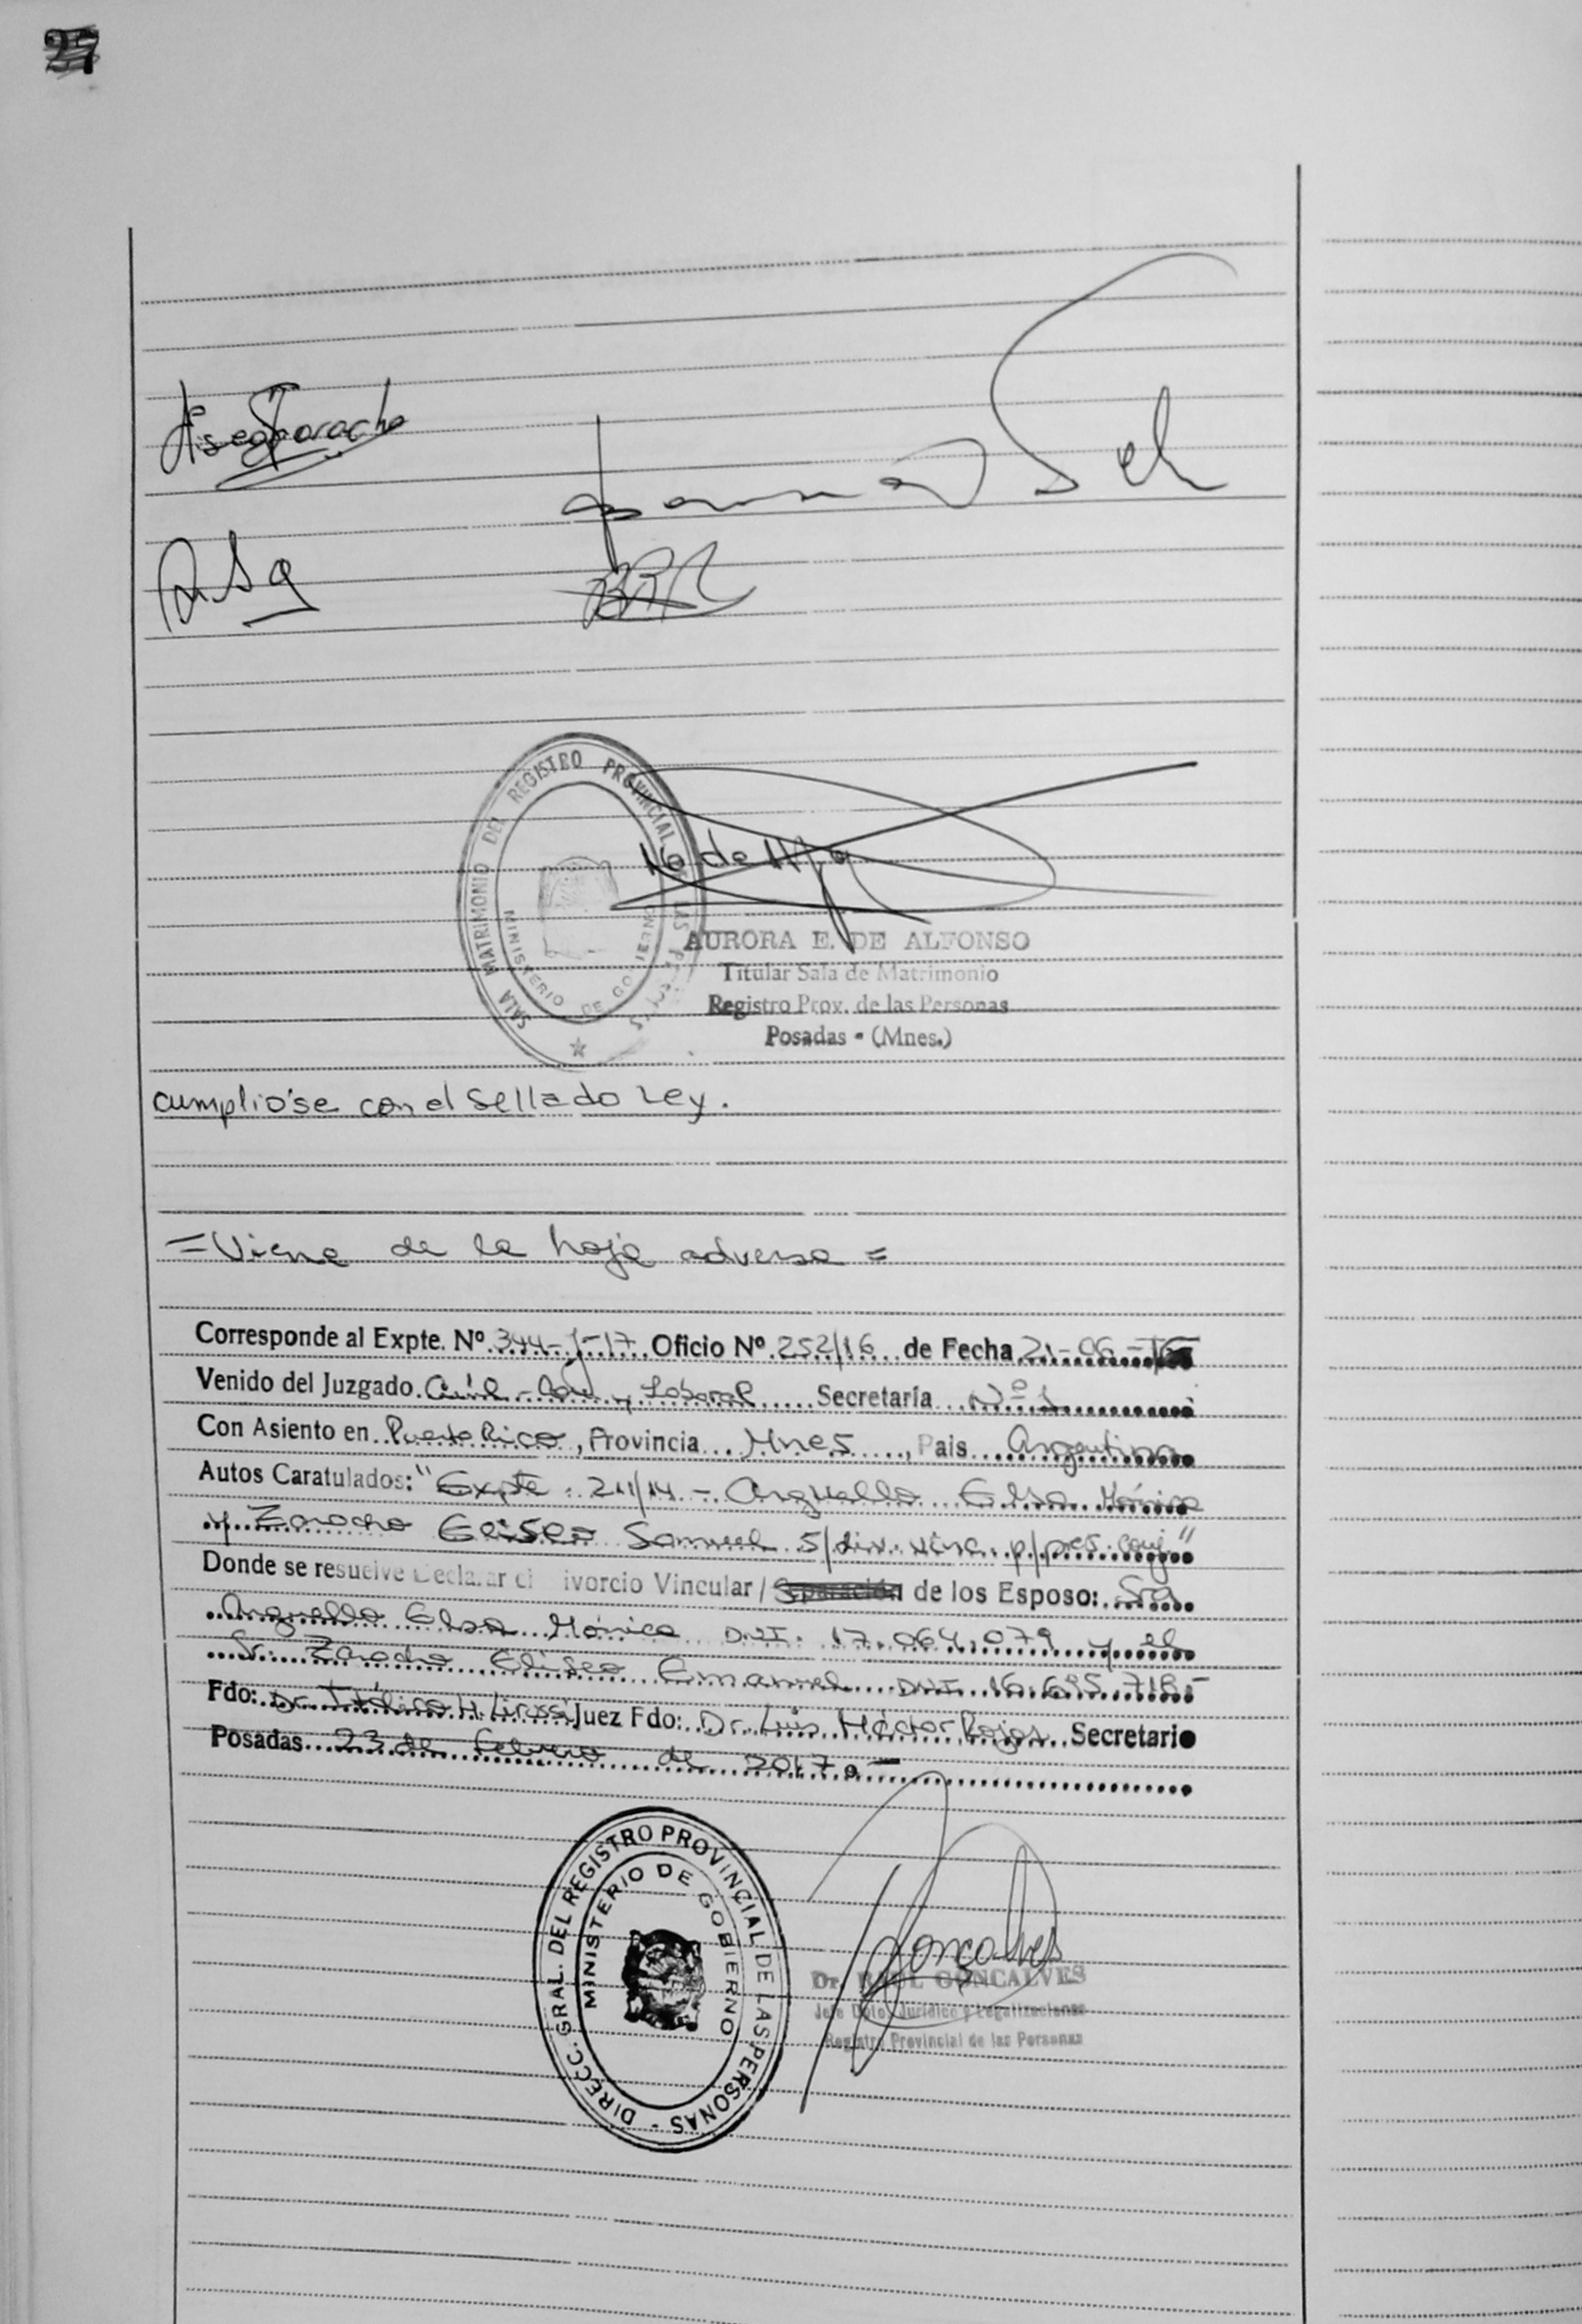 27
SALA MATRIMONIO DEL REGISTRO PROVINCIAL DE LAS PERSONAS
MINISTERIO DE GOBIERNO
AURORA E. DE ALFONSO
Titular Sala de Matrimonio
Registro Prov. de las Personas
Posadas - (Mnes.)
cumplióse con el sellado Ley.
=Viene de la hoja adversa=
Corresponde al Expte. Nº 344-J-17 Oficio Nº 252/16 de Fecha 21-06-16
Venido del Juzgado Civil - Com y Laboral Secretaría Nº 1
Con Asiento en Puerto Rico, Provincia Mnes, Pais Argentina
Autos Caratulados: "Expte. 211/14 - Arguello Elsa Mónica
y Zaracho Eliseo Samuel s/div. vinc. p/pres. conj."
Donde se resuelve Declarar el Divorcio Vincular / Separación de los Esposo: Sra
Arguello Elsa Mónica DNI. 17.064.079 y el
Sr. Zaracho Eliseo Emanuel DNI 16.695.718-
Fdo: Dr. Juez Fdo: Dr. Luis Héctor Rojas Secretario
Posadas 23 de febrero de 2017.-
DIRECC. GRAL. DEL REGISTRO PROVINCIAL DE LAS PERSONAS -
MINISTERIO DE GOBIERNO
Gonçalves
Dr. RAUL GONCALVES
Jefe Dpto. Jurídico y Legalizaciones
Registro Provincial de las Personas